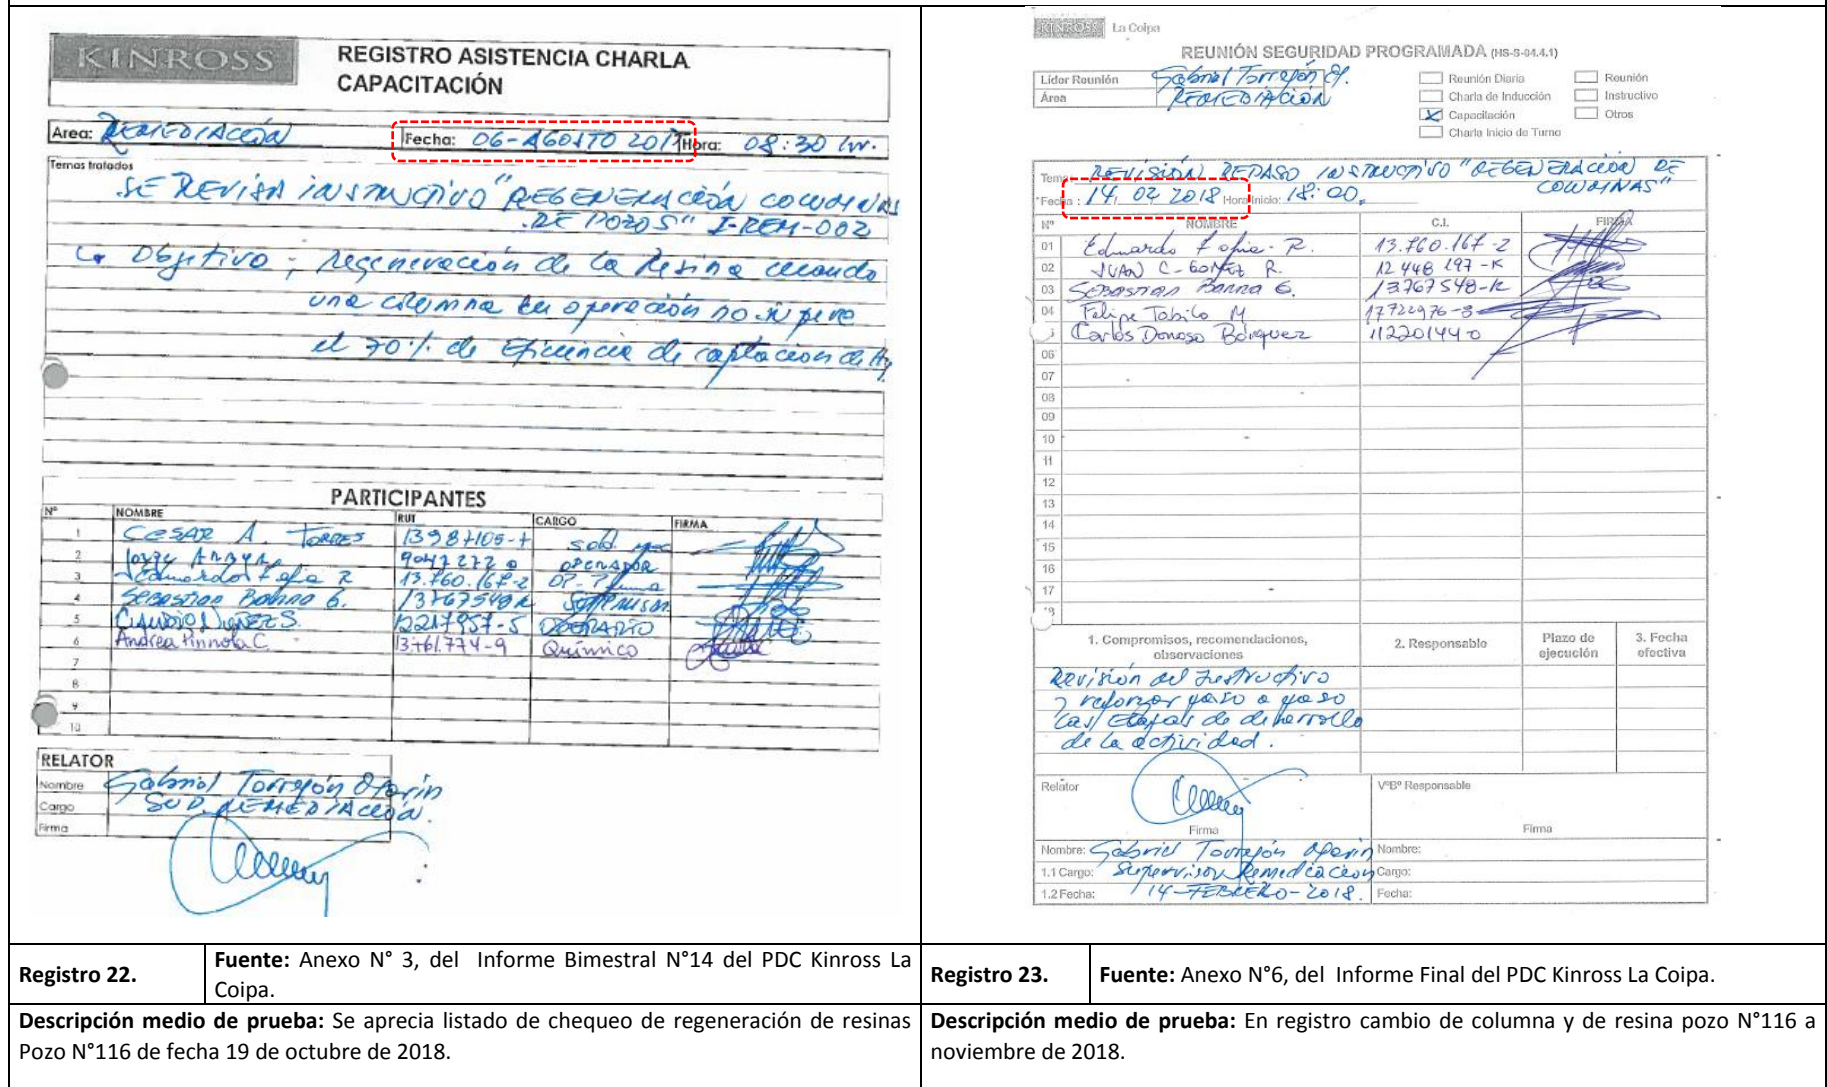 KINROSS
REGISTRO ASISTENCIA CHARLA
CAPACITACIÓN
Area: REMEDIACIÓN Fecha: 06-AGOSTO 2017 Hora: 08:30 hr.
Temas tratados
SE REVISA INSTRUCTIVO "REGENERACIÓN COLUMNAS
DE POZOS" I-REM-002
Objetivo: Regeneración de la Resina cuando
una columna en operación no supere
el 70% de Eficiencia de captación de Hg
PARTICIPANTES
Nº NOMBRE RUT CARGO FIRMA
1 CESAR A. TORRES
2 Jorge Araya OPERADOR
3 Eduardo R 13.760.167-2
4 SEBASTIAN BARRA G. 13767548-K
5 12217957-5 OPERARIO
6 Andrea C 13761.774-9 Químico
7
8
9
10
RELATOR
Nombre Gabriel Torrejón Oparin
Cargo SUP. REMEDIACIÓN.
Firma
KINROSS La Coipa
REUNIÓN SEGURIDAD PROGRAMADA (HS-S-04.4.1)
Líder Reunión Gabriel Torrejón O.
Área REMEDIACIÓN
Reunión Diaria Reunión
Charla de Inducción Instructivo
X Capacitación Otros
Charla Inicio de Turno
Tema: REVISIÓN REPASO INSTRUCTIVO "REGENERACIÓN DE
COLUMNAS"
Fecha: 14. 02 2018 Hora Inicio: 18:00.
Nº NOMBRE C.I. FIRMA
01 Eduardo R. 13.760.167-2
02 JUAN C. GOMEZ R. 12 448 197-K
03 SEBASTIAN BARRA G. 13767548-K
04 Felipe Tabilo M 17722976-3
Carlos Donoso Bórquez 11220144-0
06
07
08
09
10
11
12
13
14
15
16
17
1. Compromisos, recomendaciones,
observaciones
2. Responsable
Plazo de
ejecución
3. Fecha
efectiva
Revisión del Instructivo
y reforzar paso a paso
Las Etapas de desarrollo
de la actividad.
Relator VºBº Responsable
Firma Firma
Nombre: Gabriel Torrejón Oparin Nombre:
1.1 Cargo: Supervisor Remediación Cargo:
1.2 Fecha: 14-FEBRERO-2018. Fecha:
Registro 22.
Fuente: Anexo N° 3, del Informe Bimestral N°14 del PDC Kinross La
Coipa.
Registro 23.
Fuente: Anexo N°6, del Informe Final del PDC Kinross La Coipa.
Descripción medio de prueba: Se aprecia listado de chequeo de regeneración de resinas
Pozo N°116 de fecha 19 de octubre de 2018.
Descripción medio de prueba: En registro cambio de columna y de resina pozo N°116 a
noviembre de 2018.